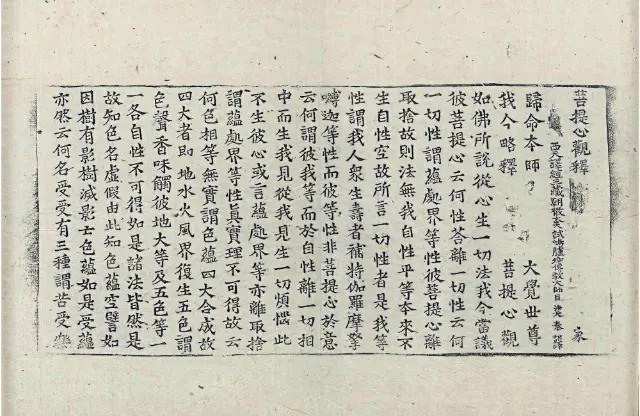 菩提心觀釋
西天譯經三藏朝散大夫試鴻臚少卿傳教大師臣法天奉詔譯
歸命本師 大覺世尊
我今略釋 菩提心觀
如佛所說從心生一切法我今當議
彼菩提心云何性答離一切性云何
一切性謂蘊處界等性彼菩提心離
取捨故則法無我自性平等本來不
生自性空故所言一切性者是我等
性謂我人眾生壽者補特伽羅摩拏
嚩迦等性而彼等性非菩提心於意
云何謂彼我等而於自性離一切相
中而生我見從我見生一切煩惱此
不生彼心或言蘊處界等亦離取捨
謂蘊處界等性真實理不可得故云
何色相等無實謂色蘊四大合成故
四大者即地水火風界復生五色謂
色聲香味觸彼地大等及五色等一
一各自性不可得如是諸法皆然是
故知色名虛假由此知色蘊空譬如
因樹有影樹滅影亡色蘊如是受蘊
亦然云何名受受有三種謂苦受樂